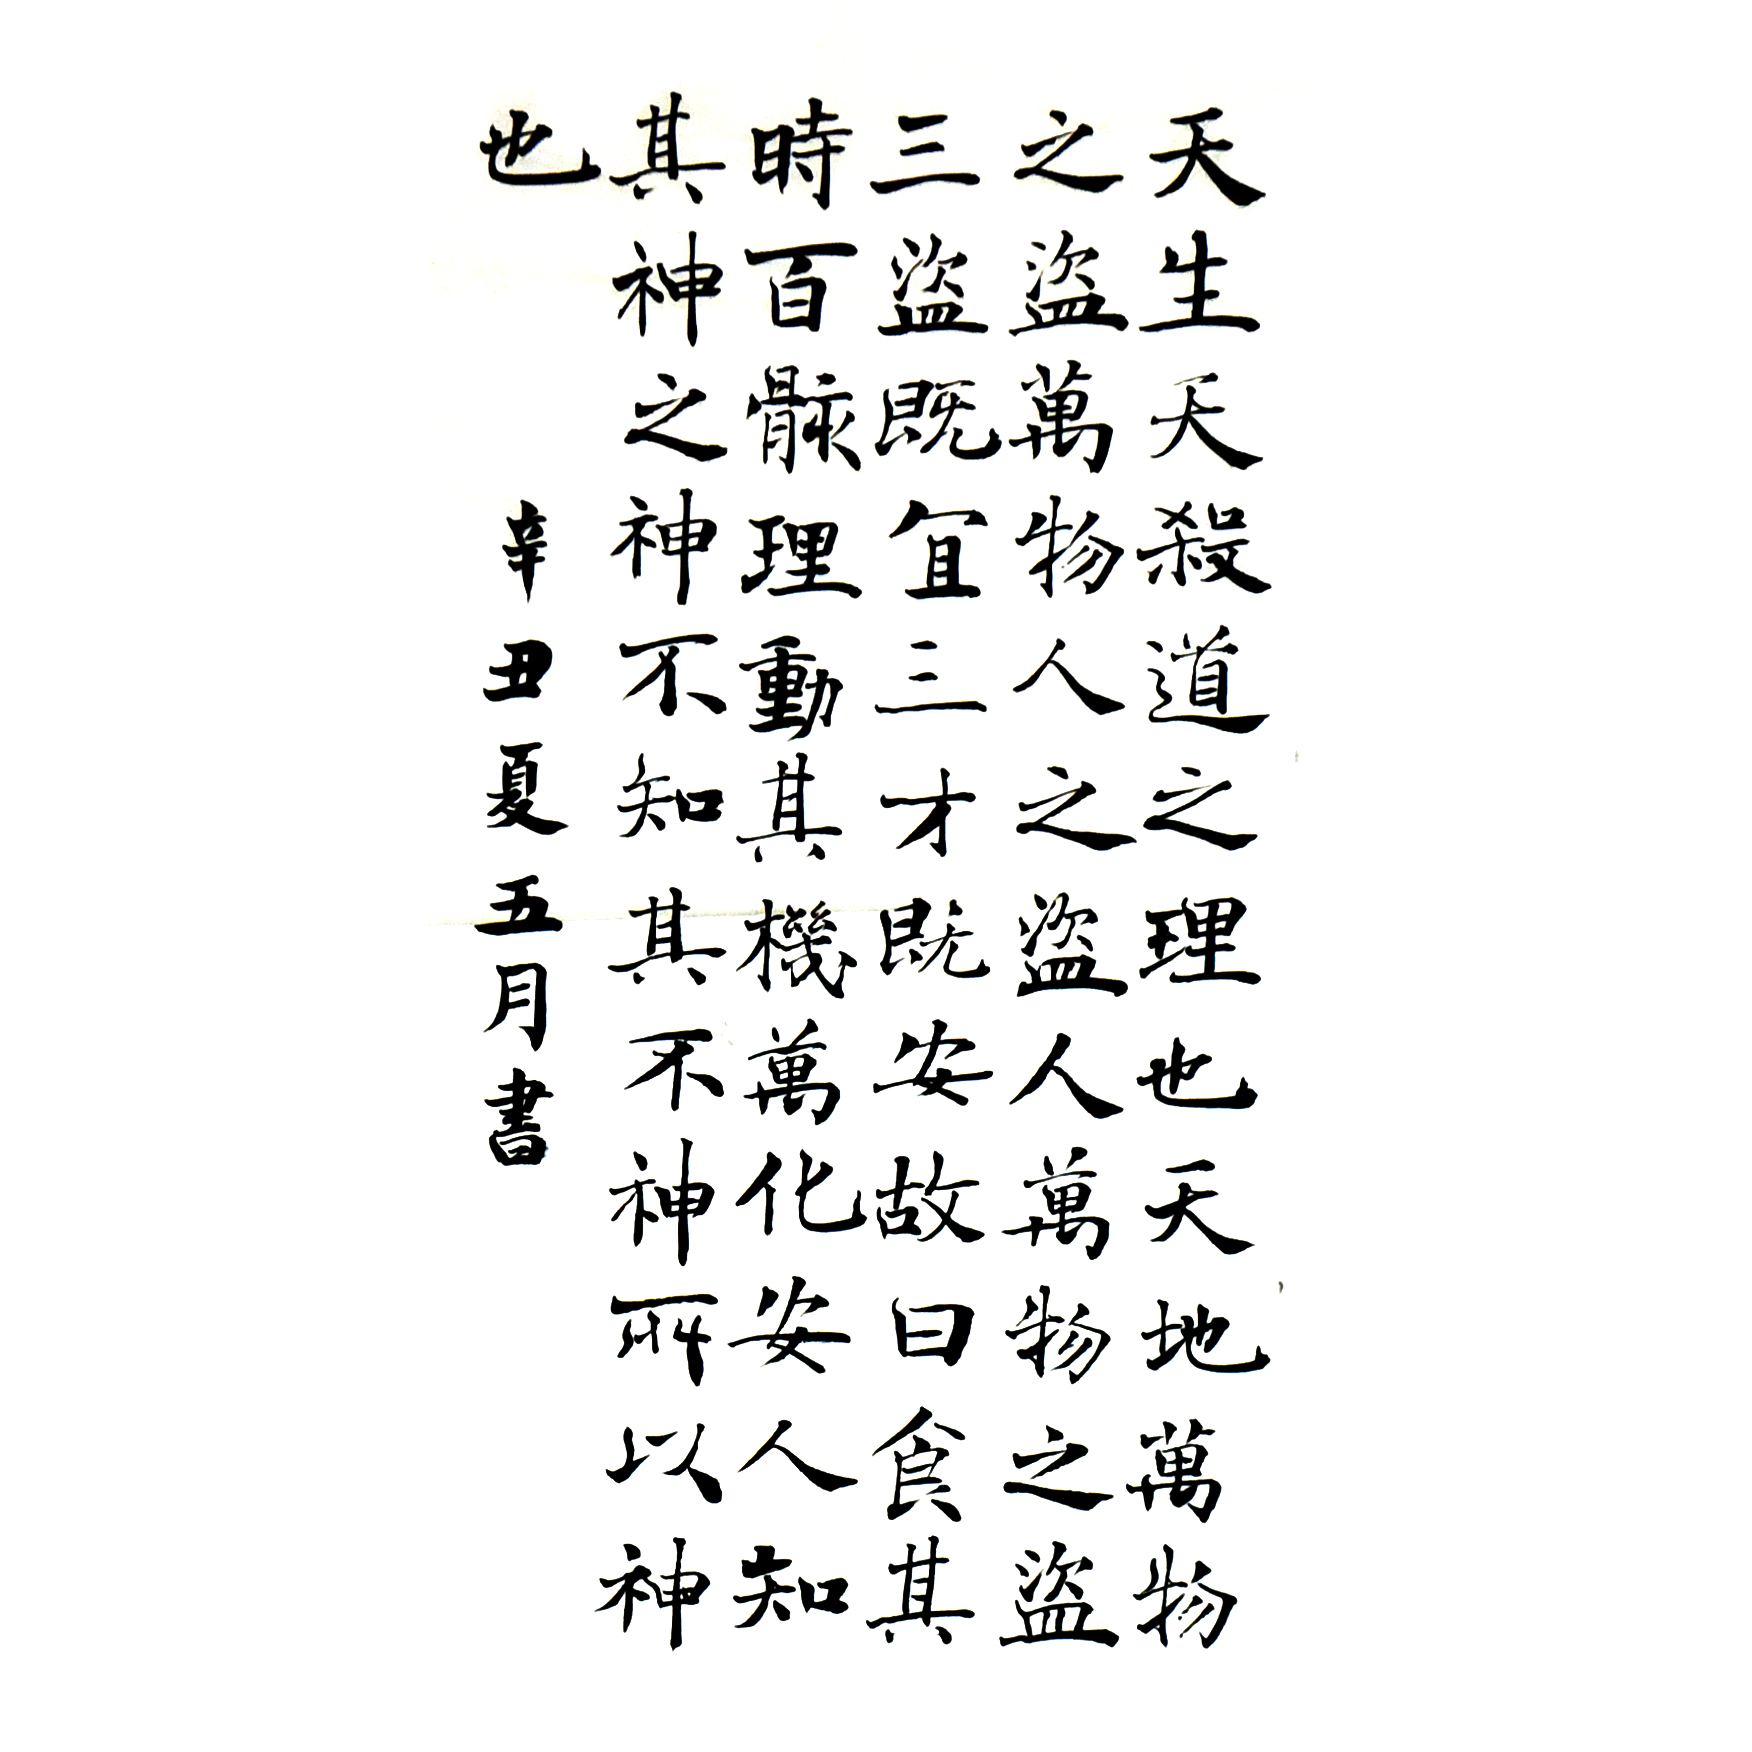 天生天殺道之理也天地萬物
之盜萬物人之盜人萬物之盜
三盜既宜三才既安故曰食其
時百骸理動其機萬化安人知
其神之神不知其不神所以神
也
辛丑夏五月書